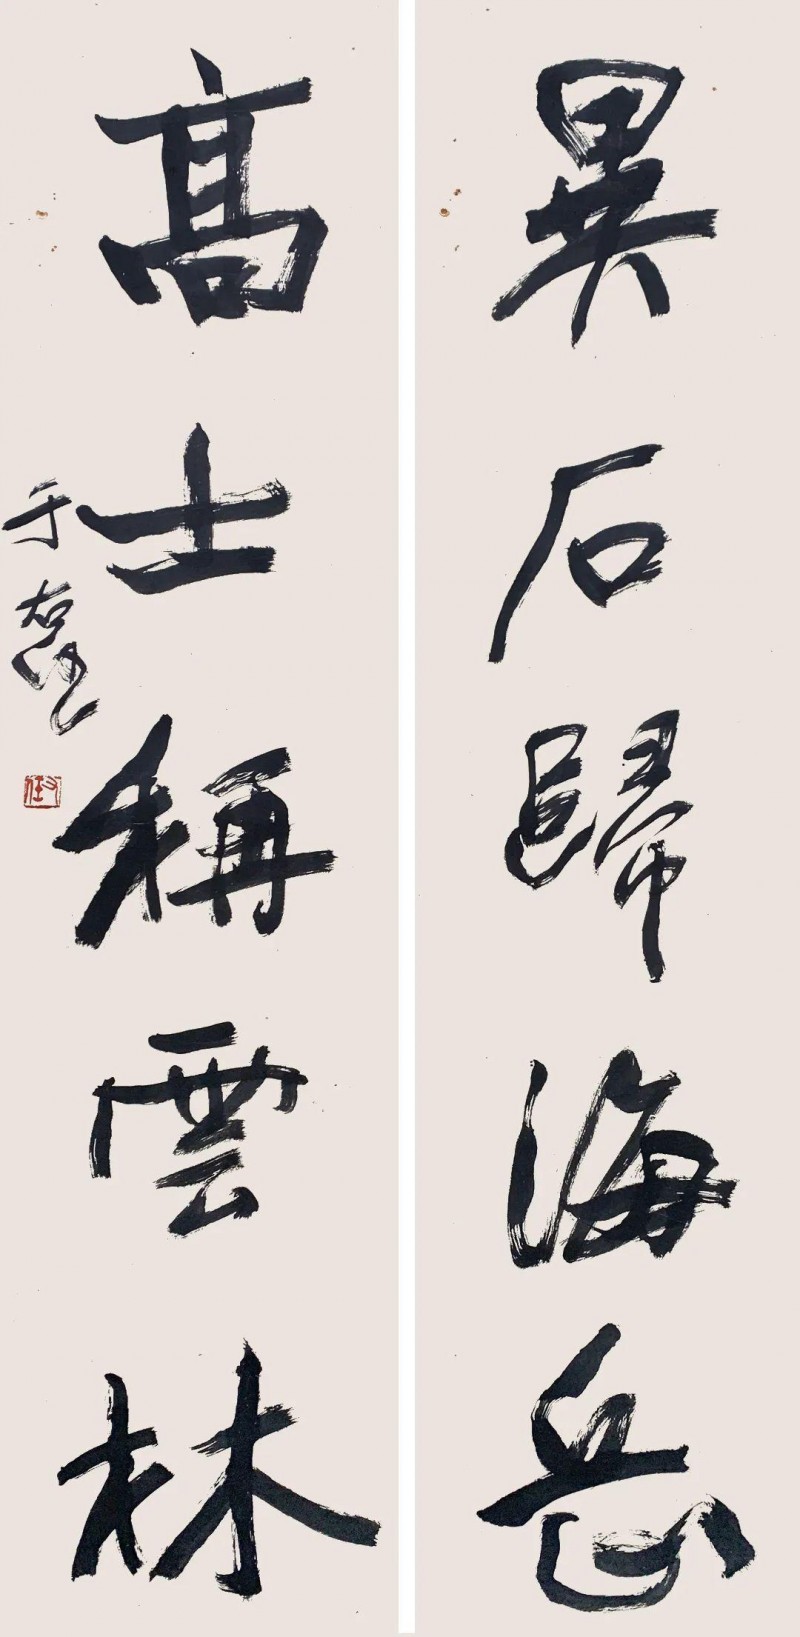 異石歸海岳
高士稱雲林
于右任